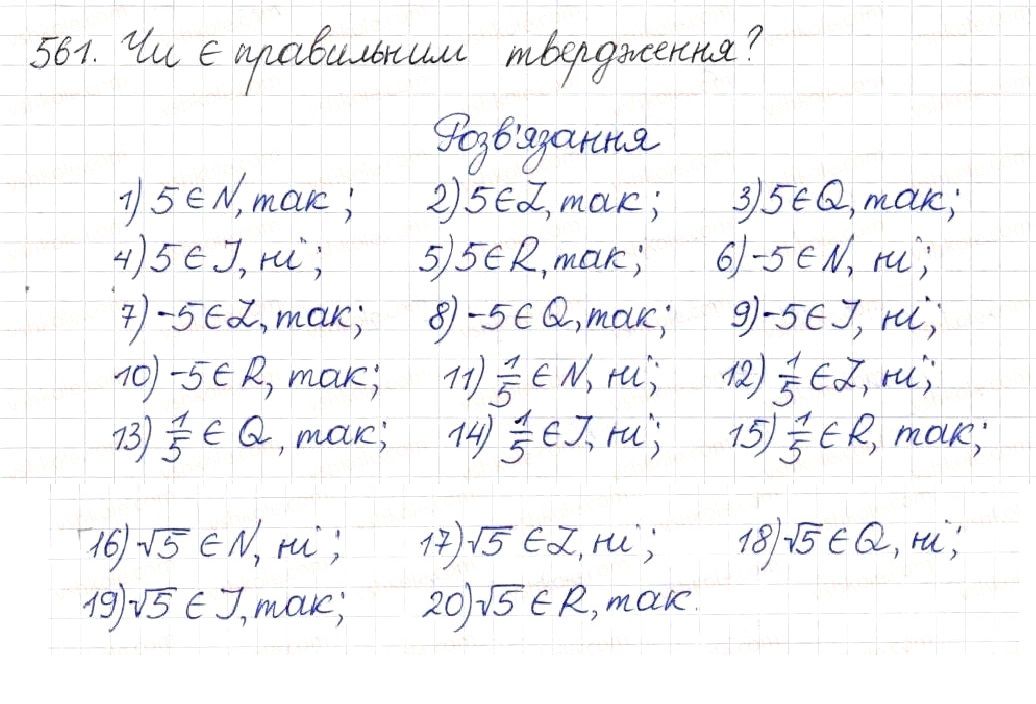 561. Чи є правильним твердження?
Розв'язання
1) 5 ∈ N, так; 2) 5 ∈ Z, так; 3) 5 ∈ Q, так;
4) 5 ∈ I, ні; 5) 5 ∈ R, так; 6) -5 ∈ N, ні;
7) -5 ∈ Z, так; 8) -5 ∈ Q, так; 9) -5 ∈ I, ні;
10) -5 ∈ R, так; 11) 1/5 ∈ N, ні; 12) 1/5 ∈ Z, ні;
13) 1/5 ∈ Q, так; 14) 1/5 ∈ I, ні; 15) 1/5 ∈ R, так;
16) √5 ∈ N, ні; 17) √5 ∈ Z, ні; 18) √5 ∈ Q, ні;
19) √5 ∈ I, так; 20) √5 ∈ R, так.